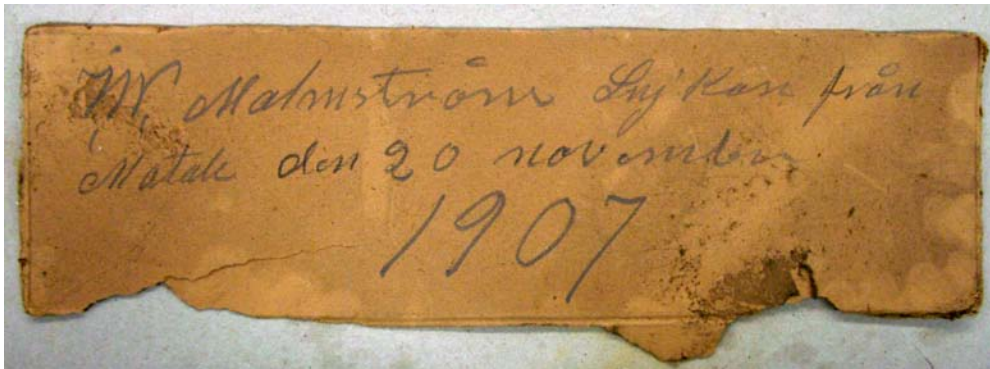 W. Malmström från
Matak den 20 november
1907